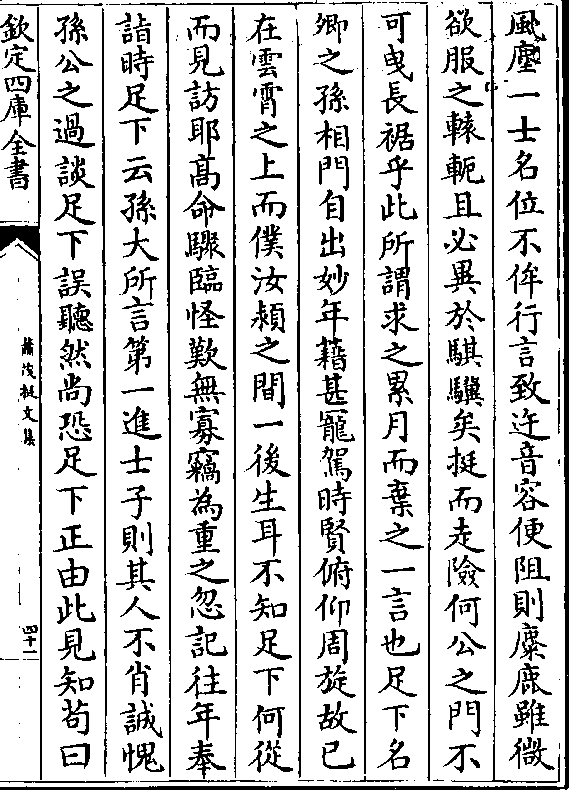 風塵一士名位不侔行言致迕音容便阻則麋鹿雖微
欲服之轅軛且必異於騏驥矣挺而走險何公之門不
可曳長裾乎此所謂求之累月而棄之一言也足下名
卿之孫相門自出妙年藉甚寵駕時賢俯仰周旋故已
在雲霄之上而僕汝潁之間一後生耳不知足下何從
而見訪耶高命驟臨怪歎無寡竊為重之忽記往年奉
詣時足下云孫大所言第一進士子則其人不肖誠愧
孫公之過談足下誤聽然尚恐足下正由此見知苟曰
欽定四庫全書
蕭茂挺文集
四十一